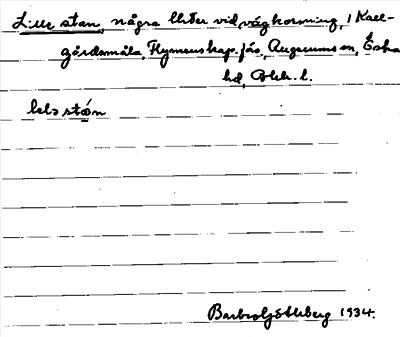 Lille stan, några [...] vid väghorsning, i Kael-
gårdsmåla, Flymenskap. fjs, Augerums sn, Östra
hd, Blek. l.
lelə stan
Barbro Göthberg 1934.